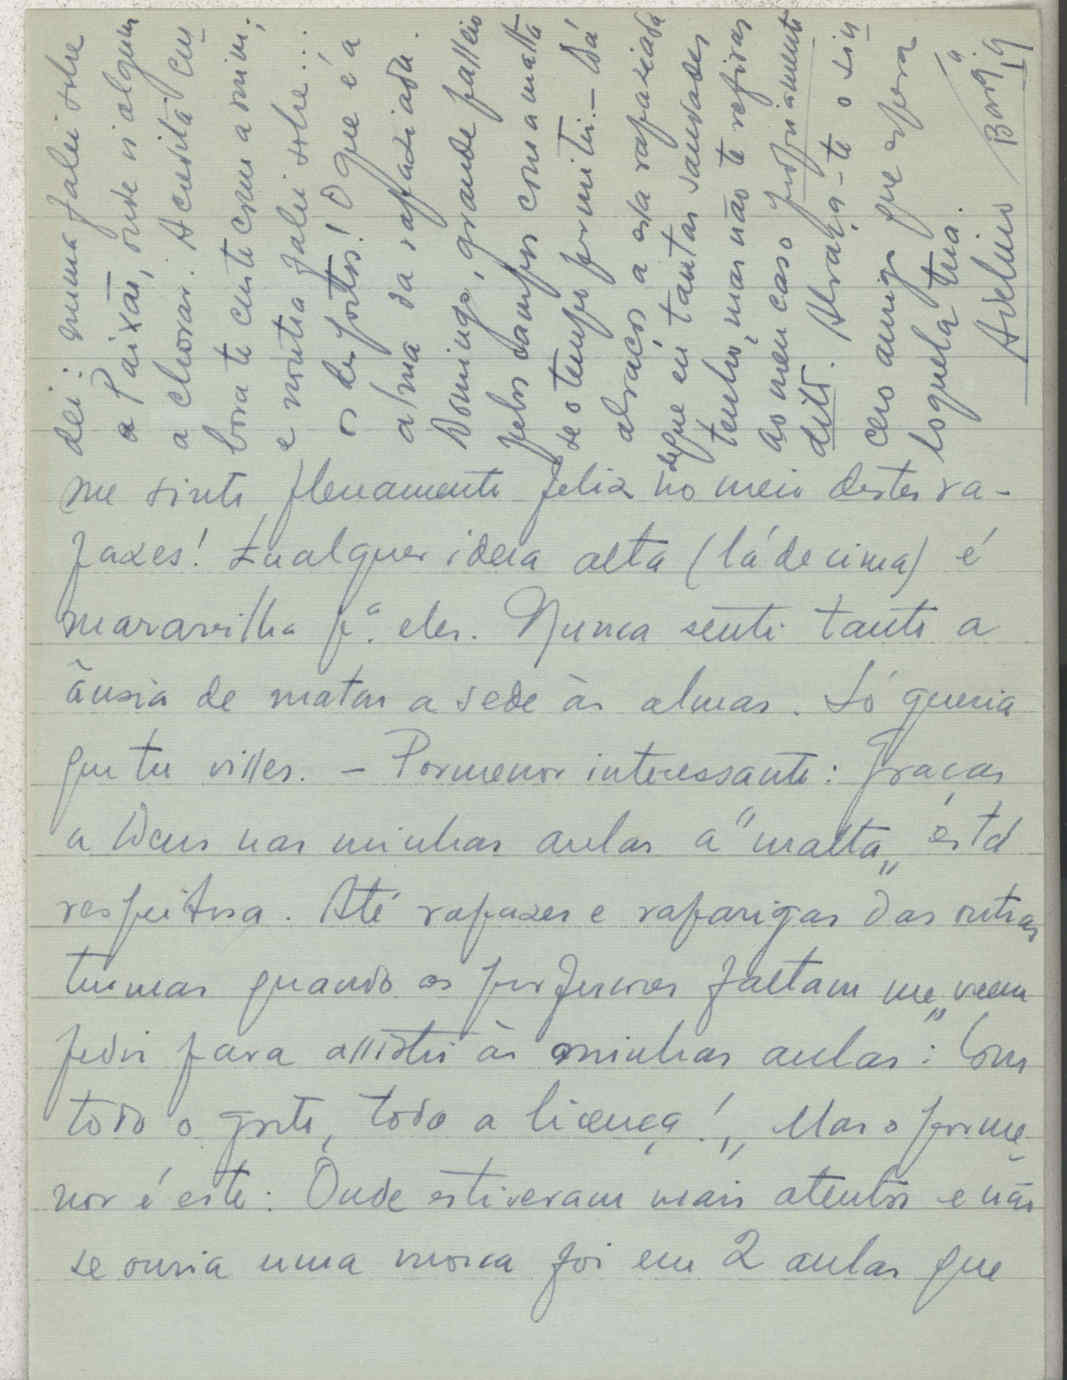 me sinto plenamente feliz no meio destes ra-
pazes! Qualquer ideia alta (lá de cima) é
maravilha pª. eles. Nunca senti tanto a
ânsia de matar a sede às almas. Só queria
que tu visses. – Pormenor interessante: Graças
a Deus nas minhas aulas a "malta" está
respeitosa. Até rapazes e raparigas das outras
turmas quando os professores faltam me "veem
pedir para assistir às minhas aulas: Com
todo o gosto, toda a licença!" Mas o porme
nor é este: Onde estiveram mais atentos e não
se ouvia uma mosca foi em 2 aulas que
dei: numa falei sobre
a Paixão, onde vi alguns
a chorar. Acredita em
bora te custe como a mim;
e noutra falei sobre...
os desportos! O que é a
alma da rapaziada.
Domingo, grande passeio
pelos campos com a malta
se o tempo permitir. – Dá
abraços a essa rapaziada
de que eu tantas saudades
tenho, mas não te refiras
ao meu caso propriamente
dito. Abraça-te o sin
cero amigo que espera
loquela tua.
Avelino